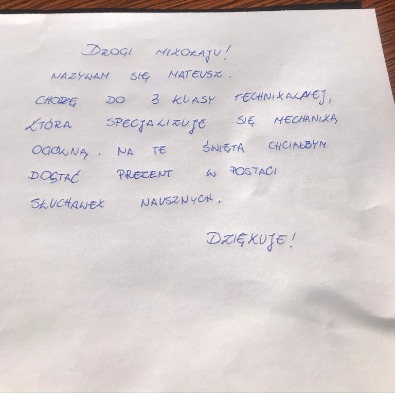 DROGI MIKOŁAJU!
NAZYWAM SIĘ MATEUSZ.
CHODZĘ DO 3 KLASY TECHNIKALNEJ,
KTÓRA SPECJALIZUJE SIĘ MECHANIKĄ
OGÓLNĄ. NA TE ŚWIĘTA CHCIAŁBYM
DOSTAĆ PREZENT W POSTACI
SŁUCHAWEK NAUSZNYCH.
DZIĘKUJE!